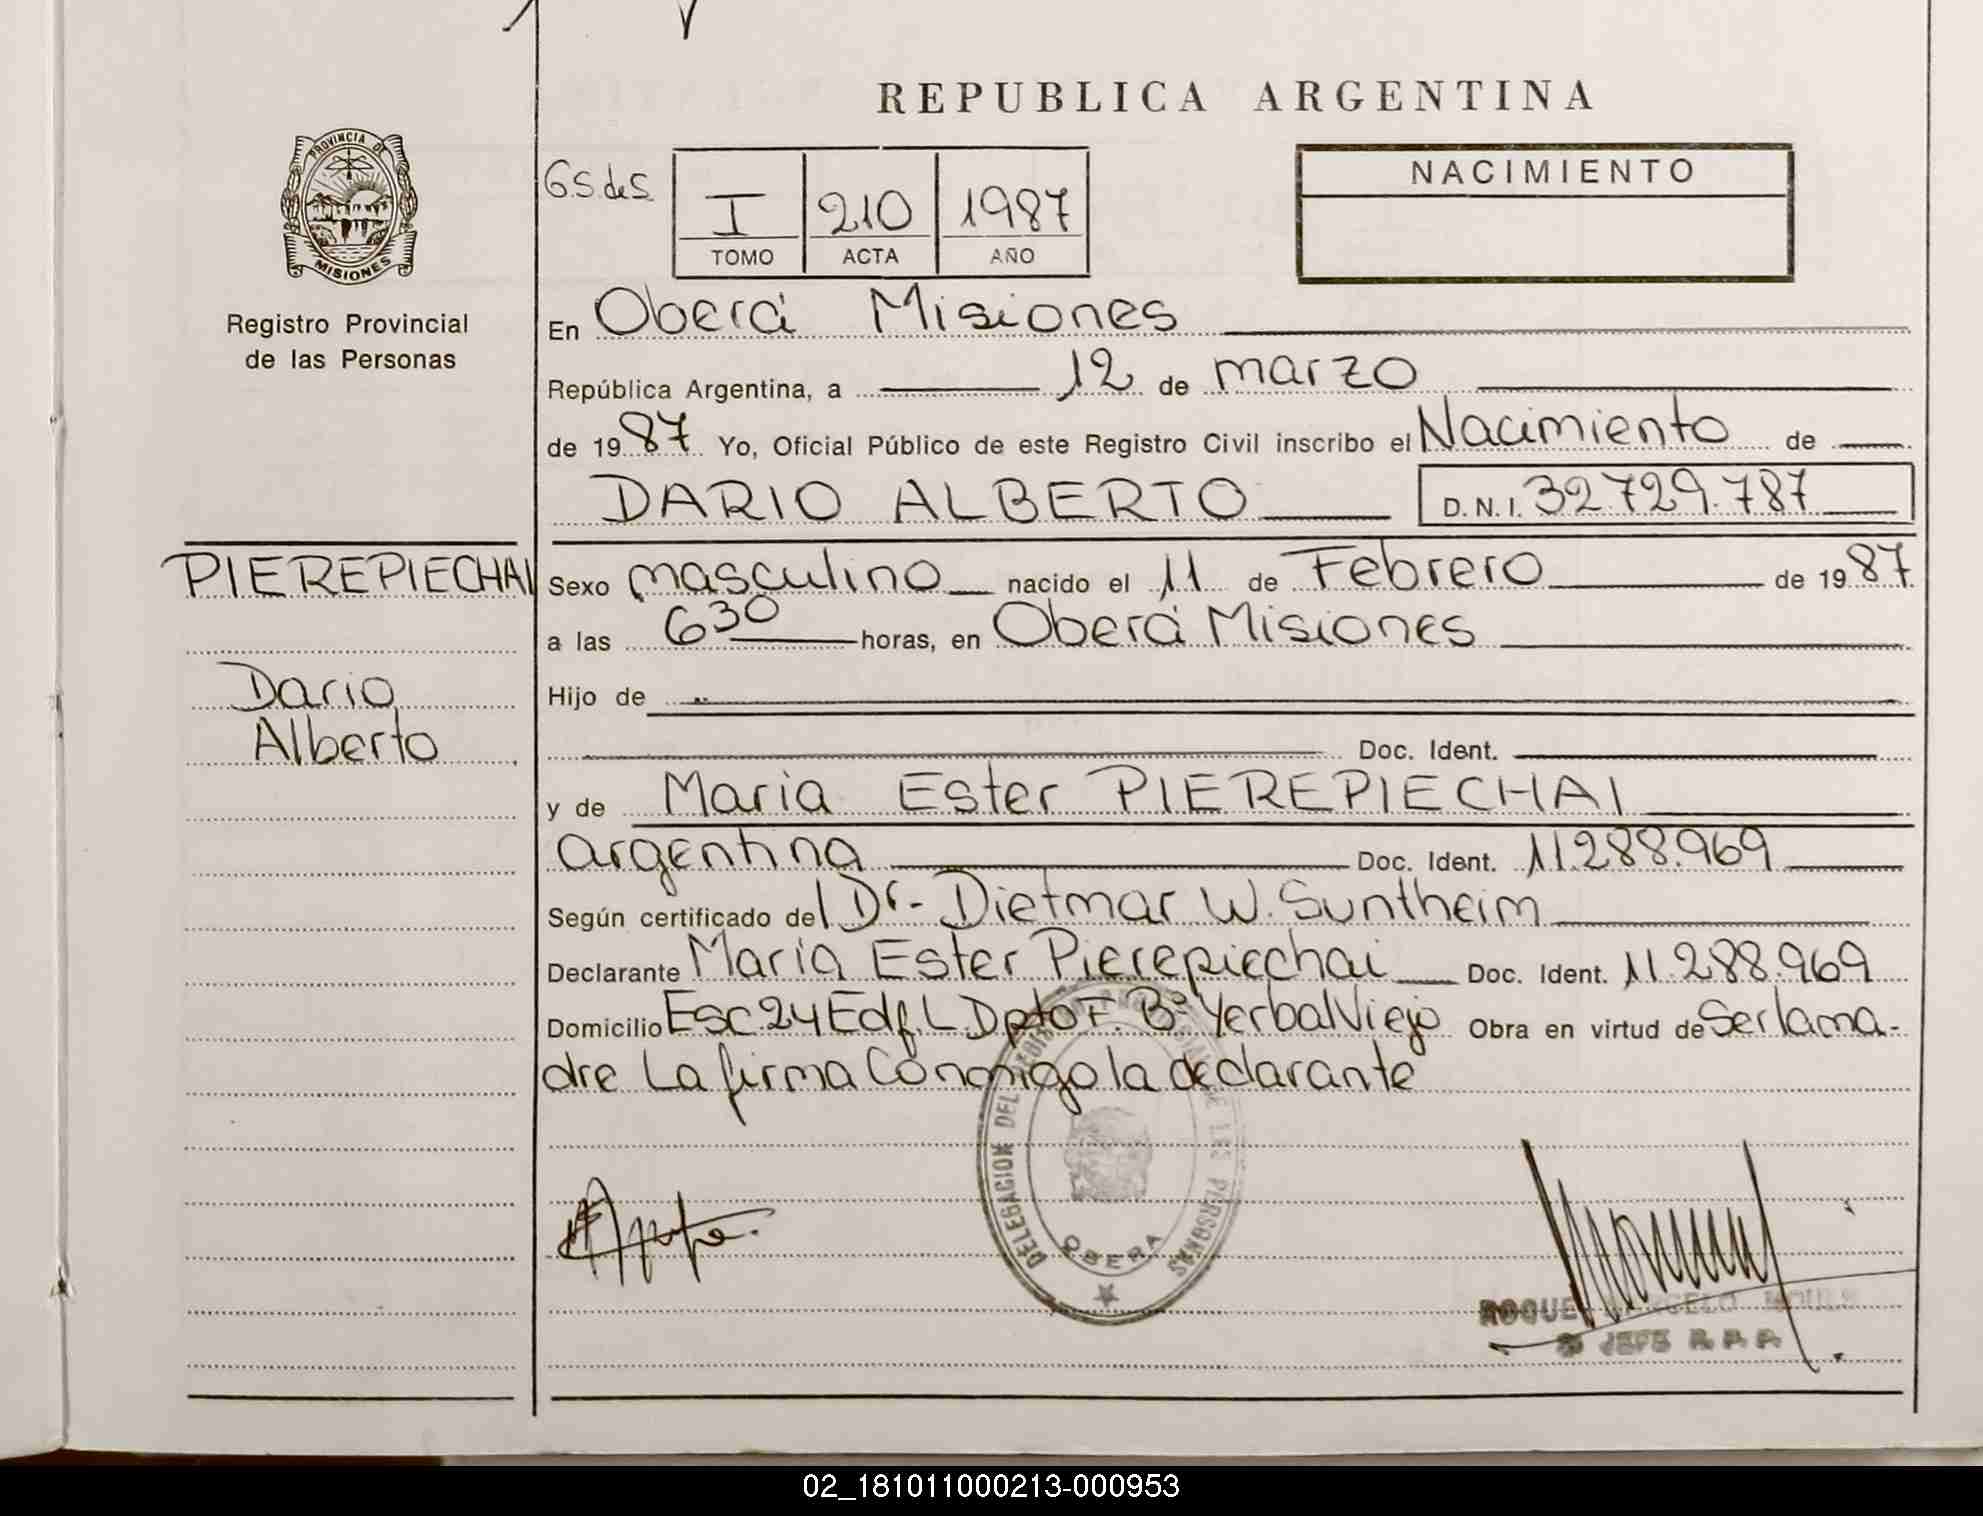 REPUBLICA ARGENTINA
PROVINCIA DE
MISIONES
Registro Provincial
de las Personas
G.S.deS.
I 210 1987
TOMO ACTA AÑO
NACIMIENTO
En Oberá Misiones
República Argentina, a 12 de marzo
de 1987 Yo, Oficial Público de este Registro Civil inscribo el Nacimiento de
DARIO ALBERTO D.N.I. 32.729.787
PIEREPIECHAI
Dario
Alberto
Sexo masculino nacido el 11 de Febrero de 1987
a las 630 horas, en Oberá Misiones
Hijo de
Doc. Ident.
y de Maria Ester PIEREPIECHAI
argentina Doc. Ident. 11.288.969
Según certificado del Dr- Dietmar W. Suntheim
Declarante María Ester Pierepiechai Doc. Ident. 11.288.969
Domicilio Esc.24 Edf. L Dpto F. Bº Yerbal Viejo Obra en virtud de Ser la ma-
dre La firma Conmigo la declarante
DELEGACION DEL REGISTRO PROVINCIAL DE LAS PERSONAS
OBERA
ROQUE MARCELO
JEFE R.P.P.
02_181011000213-000953